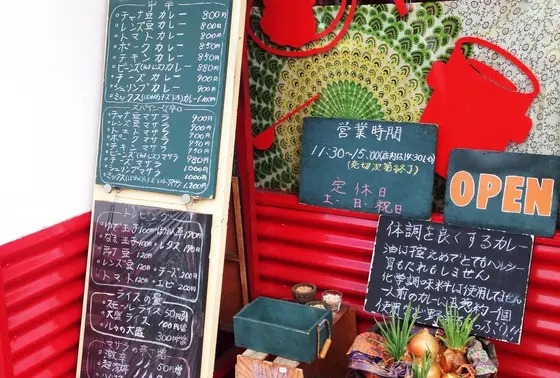 チャナ豆カレー 800円
レンズ豆カレー 800円
トマトカレー 800円
ポークカレー 850円
チキンカレー 850円
ビーンズ カレー 880円
チーズカレー 900円
シュリンプカレー 900円
ミックス カレー 1,200円
チャナ豆マサラ 900円
レンズ豆マサラ 900円
トマトマサラ
ポークマサラ
チキンマサラ
マサラ 980円
チーズマサラ
シュリンプマサラ
ミックス マサラ 1,200円
トッピング
ゆで玉子100円
なま玉子100円 レタス
チャナ豆120円
レンズ豆120円 チーズ200円
トマト120円 エビ200円
ライスの量
スモールライス 50円引
大盛ライス 100円増
ルウの大盛 300円増
マサラの
激辛 50円増
営業時間
11:30〜15:00
(売切次第終了)
定休日
土・日・祝日
OPEN
体調を良くするカレー
油は控えめでとてもヘルシー
胃もたれもしません
化学調味料は使用してません
一人前のカレーに玉葱約一個
使用